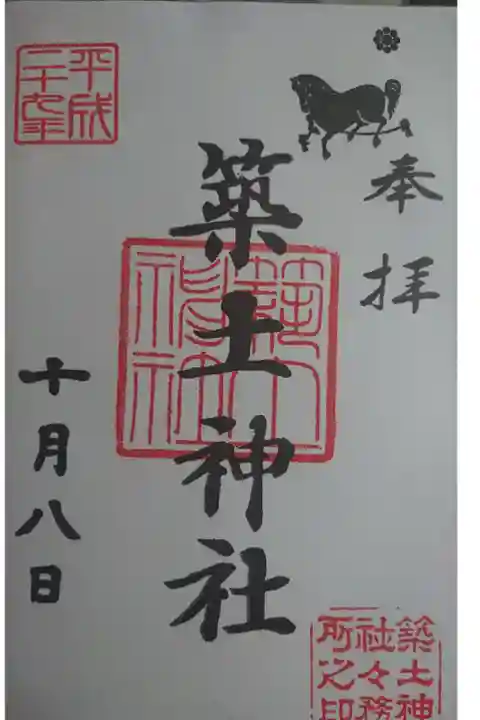 奉拝
築土神社
平成
二十七年
十月八日
築土神
社々務
所之印